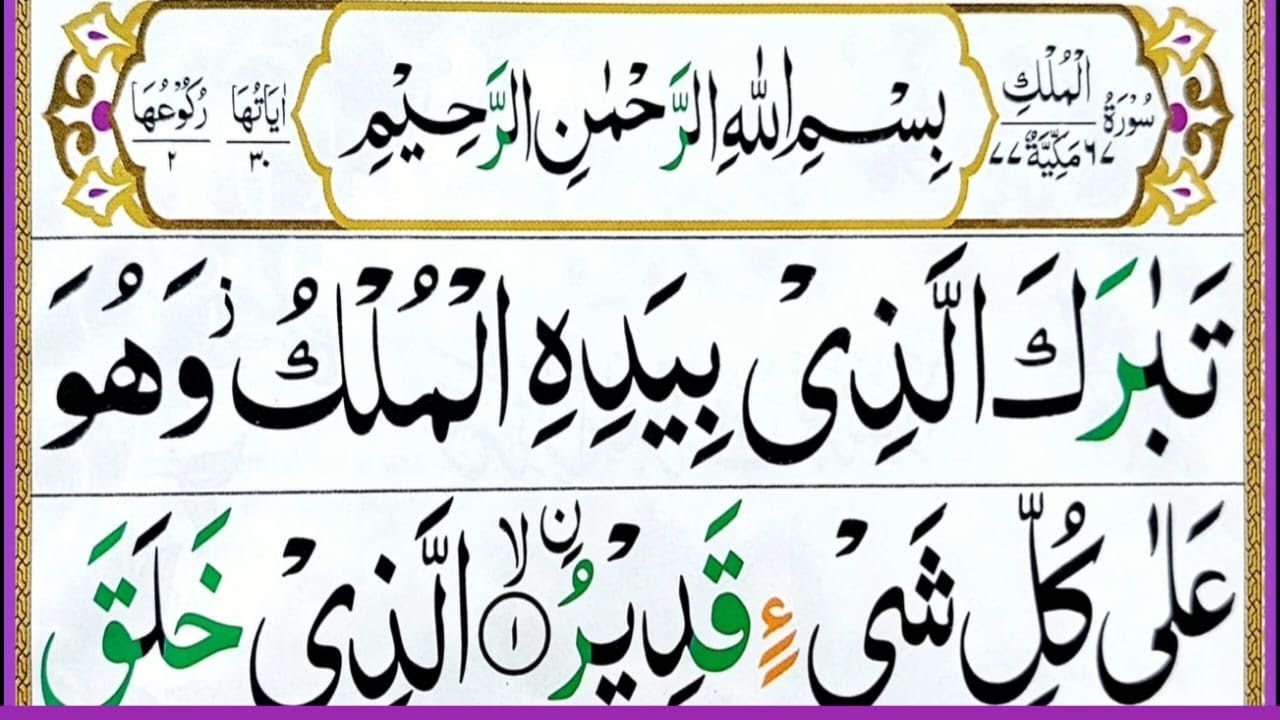 سُوْرَةُ الْمُلْكِ
٦٧ مَكِّيَّةٌ ٧٧
بِسْمِ اللّٰهِ الرَّحْمٰنِ الرَّحِيْمِ
اٰيَاتُهَا ٣٠
رُكُوْعُهَا ٢
تَبٰرَكَ الَّذِىْ بِيَدِهِ الْمُلْكُ ز وَهُوَ
عَلٰى كُلِّ شَىْءٍ قَدِيْرُ ۨ ۙ ١ الَّذِىْ خَلَقَ